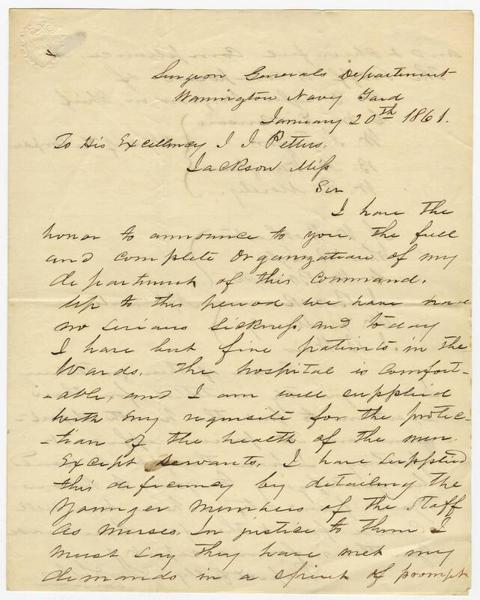 Surgeon Generals Department
Warrington Navy Yard
January 20th 1861.
To His Excellency J J Pettus.
Jackson Miss
Sir
I have the
honor to announce to you, the full
and complete Organization of my
department of this Command.
Up to this period we have have
no serious sickness and to day
I have but five patients in the
Wards. The hospital is comfort-
-able, and I am well supplied
with my requisite for the protec-
-tion of the health of the men.
Except servants, I have supplied
this deficiency by detailing the
Younger members of the Staff
as nurses. In justice to them I
must say they have met my
demands in a spirit of prompt